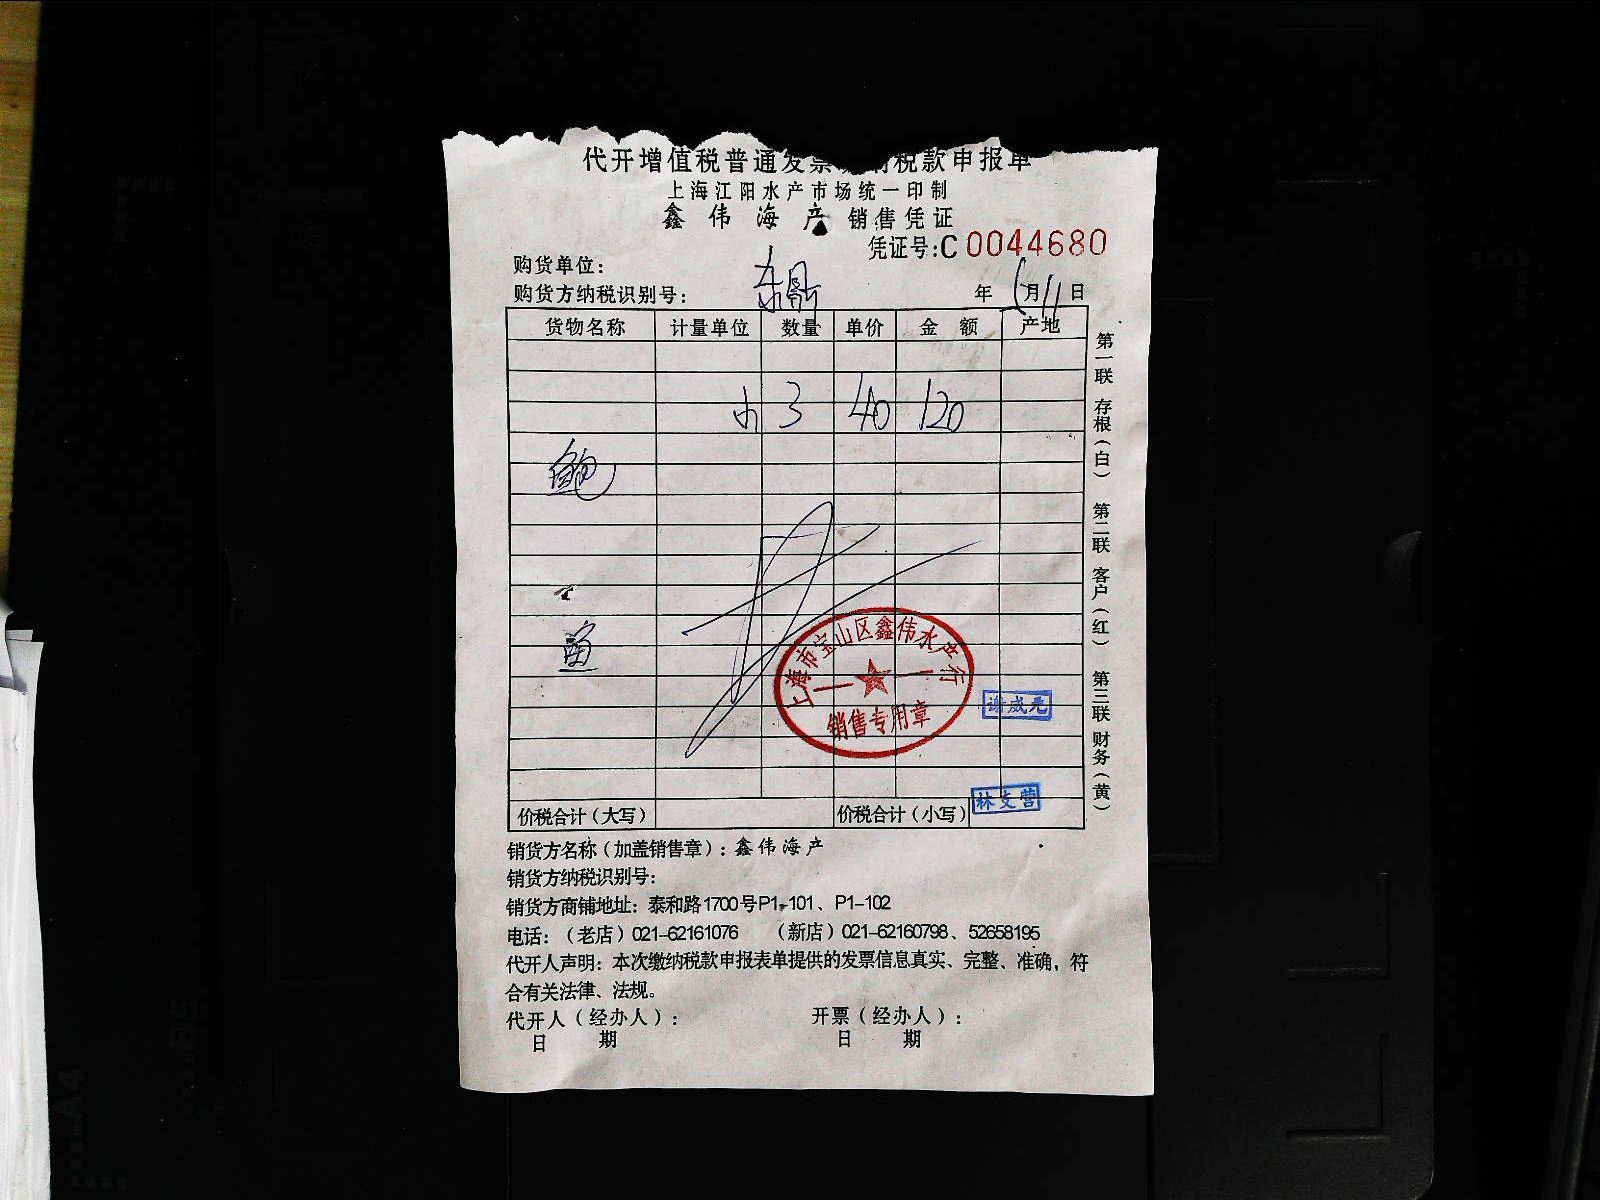 代开增值税普通发票缴纳税款申报单
上海江阳水产市场统一印制
鑫伟海产 销售凭证
凭证号:C 0044680
购货单位:
购货方纳税识别号: 年 月11日
货物名称 计量单位 数量 单价 金 额 产地
小 3 40 120
鲍
鱼
上海市宝山区鑫伟水产行
销售专用章
谢成亮
林支营
价税合计(大写) 价税合计(小写)
第一联 存根(白) 第二联 客户(红) 第三联 财务(黄)
销货方名称(加盖销售章):鑫伟海产
销货方纳税识别号:
销货方商铺地址:泰和路1700号P1-101、P1-102
电话:(老店)021-62161076 (新店)021-62160798、52658195
代开人声明:本次缴纳税款申报表单提供的发票信息真实、完整、准确,符
合有关法律、法规。
代开人(经办人): 开票(经办人):
日 期 日 期